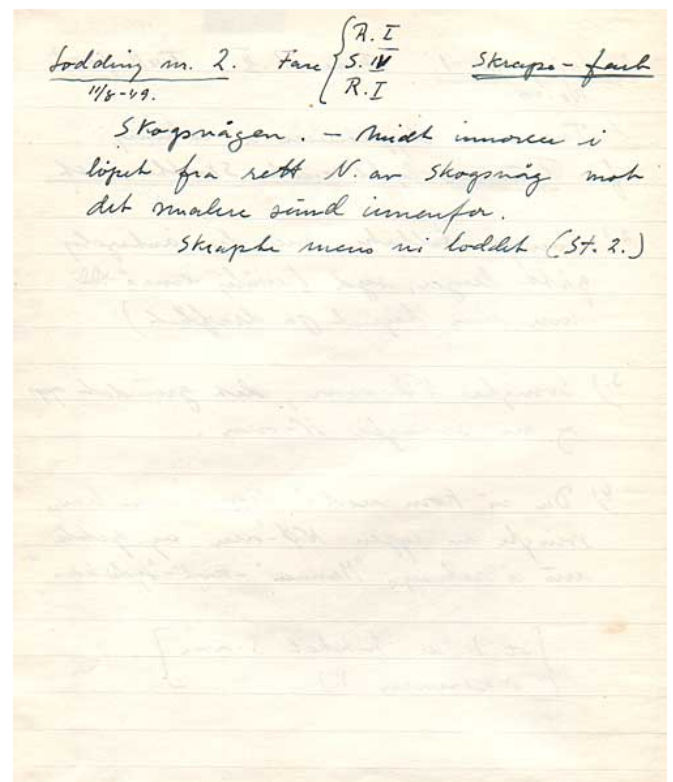 Lodding nr. 2. Fart { R. I
S. IV
R. I
Skrape-fart
11/8-49.
Skogsvågen. - Midt innover i
löpet fra rett N. av Skogsvåg mot
det smalere sund innenfor.
Skrapte mens vi loddet (St. 2.)